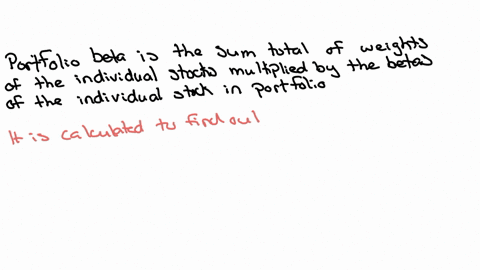 Portfolio beta is the sum total of weights
of the individual stocks multiplied by the betas
of the individual stock in portfolio
It is calculated to find out